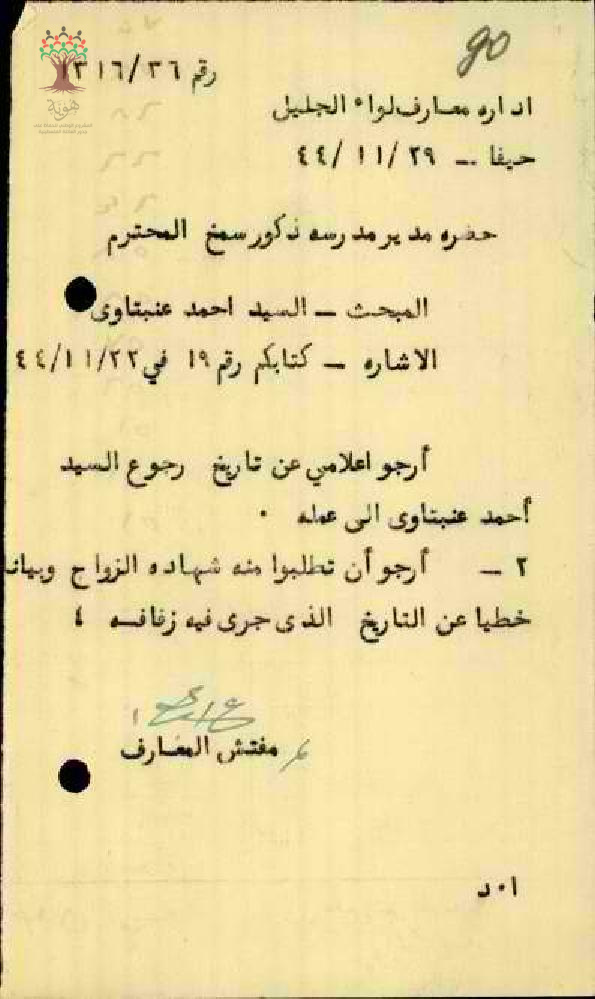 90
رقم ٣١٦/٣٦
اداره معارف لواء الجليل
حيفا – ٤٤/١١/٢٩
حضره مدير مدرسه ذكور سمخ المحترم
المبحث – السيد احمد عنبتاوى
الاشاره – كتابكم رقم ١٩ في ٤٤/١١/٢٢
أرجو اعلامي عن تاريخ رجوع السيد
أحمد عنبتاوى الى عمله ٠
٢ – أرجو أن تطلبوا منه شهاده الزواج وبيانا
خطيا عن التاريخ الذى جرى فيه زفافه ٤
مفتش المعارف
ا٠د
هوية